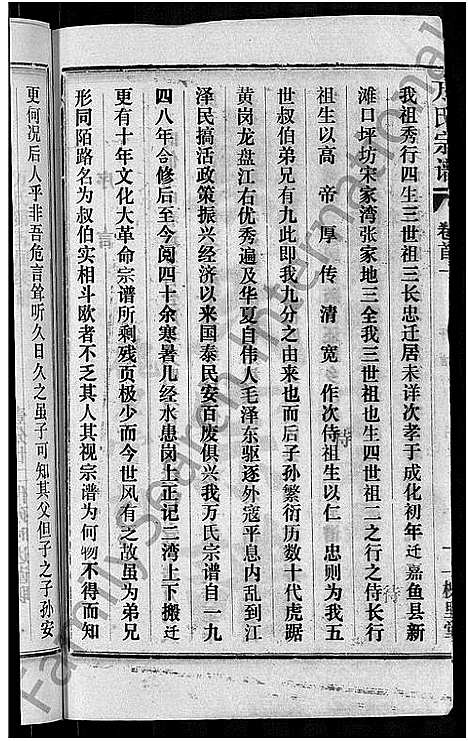 万氏宗谱
卷首一
我祖秀行四生三世祖三长忠迁居未详次孝于成化初年迁嘉鱼县新
滩口坪坊宋家湾张家地三全我三世祖也生四世祖二之行之侍长行
祖生以高帝厚传清宽作次侍祖生以仁忠则为我五
世叔伯弟兄有九此即我九分之由来也而后子孙繁衍历数十代虎踞
黄岗龙盘江右优秀遍及华夏自伟人毛泽东驱逐外寇平息内乱到江
泽民搞活政策振兴经济以来国泰民安百废俱兴我万氏宗谱自一九
四八年合修后至今阅四十余寒暑几经水患岗上正记二湾上下搬迁
更有十年文化大革命宗谱所剩残页极少而今世风有之故虽为弟兄
形同陌路名为叔伯实相斗欧者不乏其人其视宗谱为何物不得而知
更何况后人乎非吾危言耸听久日久之虽子可知其父但子之子孙安
待
侍
FamilySearch International